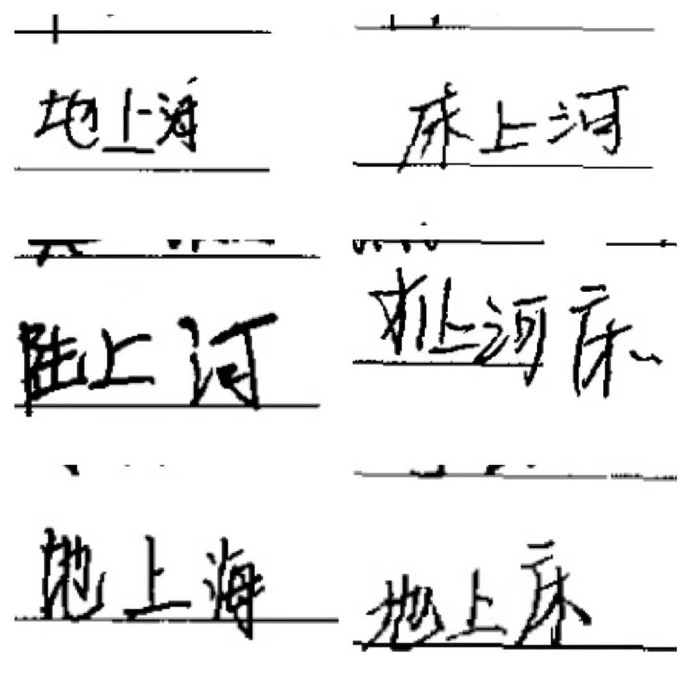 地上海
床上河
陆上河
机上河床
地上海
地上床